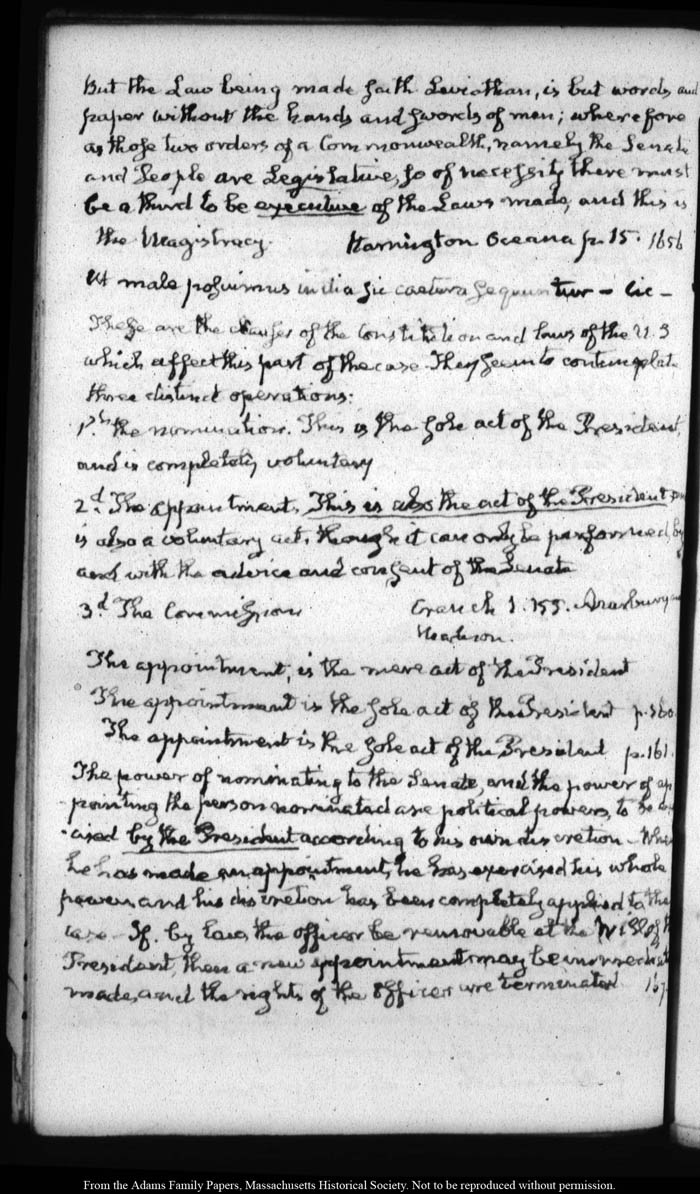 But the Law being made saith Leviathan, is but words and
paper without the hands and swords of men; wherefore
as those two orders of a Commonwealth, namely the Senate
and People are Legislative, so of necessity there must
be a third to be executive of the Laws made, and this is
the Magistracy. Harrington Oceana p. 15. 1656
Ut male posuimus initia sic caetera sequuntur — Cic —
These are the clauses of the Constitution and laws of the U.S
which affect this part of the case. They seem to contemplate
three distinct operations:
1st the nomination. This is the sole act of the President,
and is completely voluntary
2d. The appointment. This is also the act of the President, and
is also a voluntary act, though it can only be performed by
and with the advice and consent of the Senate
3d. The Commission Cranch 1. 155. Marbury and
Madison.
The appointment, is the mere act of the President
The appointment is the sole act of the President p. 160.
The appointment is the sole act of the President p. 161.
The power of nominating to the Senate, and the power of ap
pointing the person nominated are political powers, to be
cised by the President according to his own discretion. When
he has made an appointment, he has exercised his whole
power, and his discretion has been completely applied to the
case. If. by law the officer be removable at the Will of the
President, then a new appointment may be immediat
made, and the rights of the officer are terminated 167.
From the Adams Family Papers, Massachusetts Historical Society. Not to be reproduced without permission.